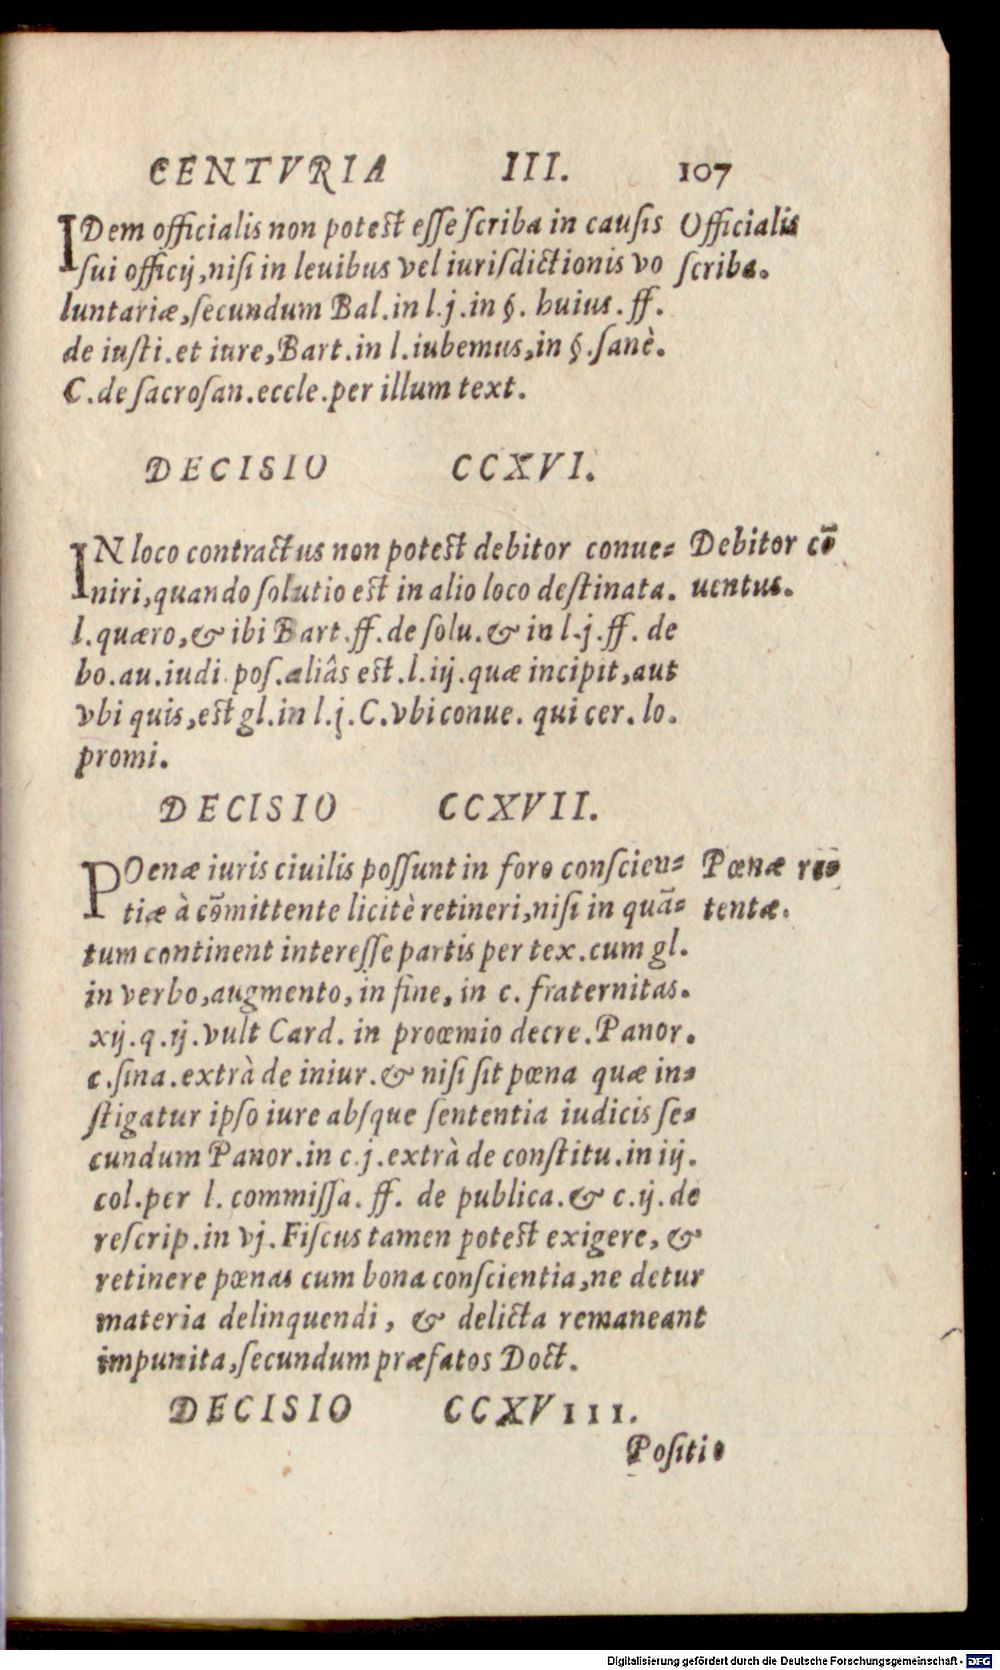 CENTVRIA III. 107
IDem officialis non potest esse scriba in causis Officialis
sui officij, nisi in leuibus vel iurisdictionis vo scriba.
luntariæ, secundum Bal. in l. j. in §. huius. ff.
de iusti. et iure, Bart. in l. iubemus, in §. sanè.
C. de sacrosan. eccle. per illum text.
DECISIO CCXVI.
IN loco contractus non potest debitor conue= Debitor cō
niri, quando solutio est in alio loco destinata. uentus.
l. quæro, & ibi Bart. ff. de solu. & in l. j. ff. de
bo. au. iudi. pos. aliâs est. l. iij. quæ incipit, aut
vbi quis, est gl. in l. j. C. vbi conue. qui cer. lo.
promi.
DECISIO CCXVII.
POenæ iuris ciuilis possunt in foro conscien= Pœnæ re=
tiæ à cōmittente licitè retineri, nisi in quā= tentæ.
tum continent interesse partis per tex. cum gl.
in verbo, augmento, in fine, in c. fraternitas.
xij. q. ij. vult Card. in proœmio decre. Panor.
c. sina. extrà de iniur. & nisi sit pœna quæ in=
stigatur ipso iure absque sententia iudicis se=
cundum Panor. in c. j. extrà de constitu. in iij.
col. per l. commissa. ff. de publica. & c. ij. de
rescrip. in vj. Fiscus tamen potest exigere, &
retinere pœnas cum bona conscientia, ne detur
materia delinquendi, & delicta remaneant
impunita, secundum præfatos Doct.
DECISIO CCXVIII.
Positio
Digitalisierung gefördert durch die Deutsche Forschungsgemeinschaft - DFG